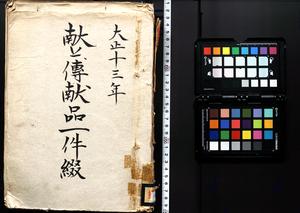 大正十三年
献上傳献品一件綴